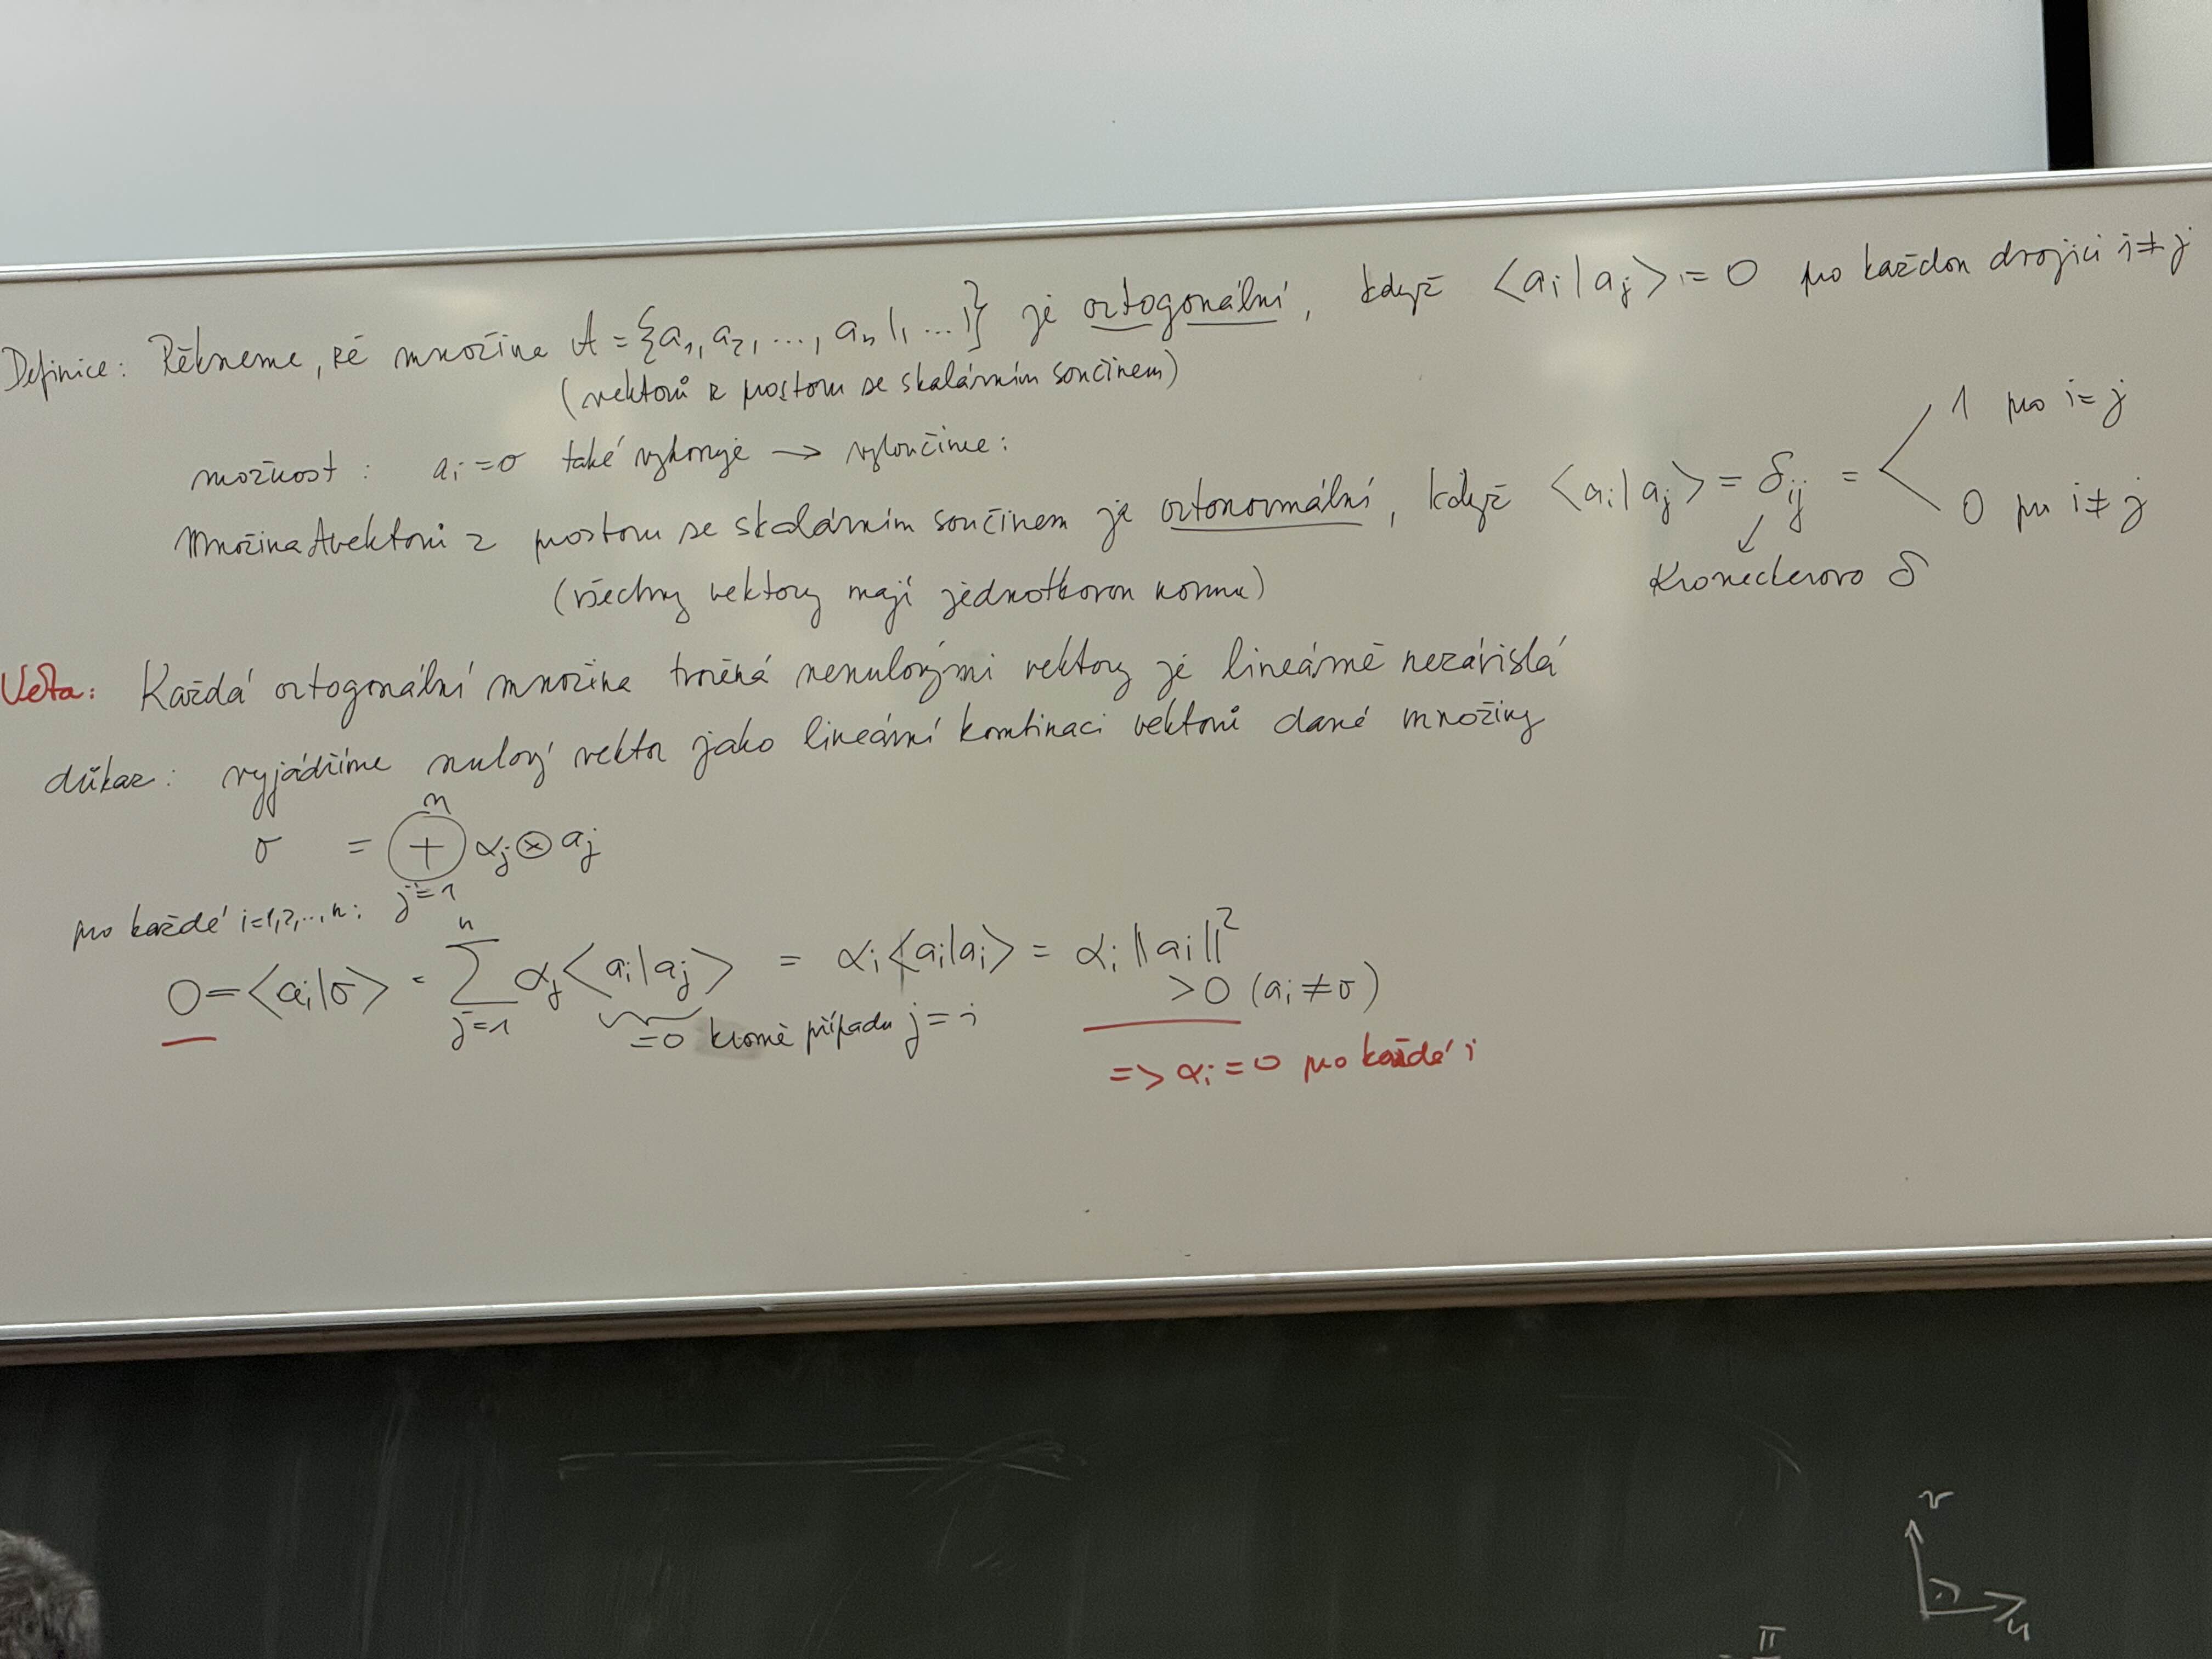 Definice: Řekneme, že množina A = {a₁, a₂, ..., aₙ (, ...)} je ortogonální, když <aᵢ|aⱼ> = 0 pro každou dvojici i≠j
(vektorů z prostoru se skalárním součinem)
možnost: aᵢ = σ také vyhovuje → vyloučíme:
Množina A vektorů z prostoru se skalárním součinem je ortonormální, když <aᵢ|aⱼ> = δᵢⱼ = 1 pro i=j
0 pro i≠j
(všechny vektory mají jednotkovou normu)
Kroneckerovo δ
Věta: Každá ortogonální množina tvořená nenulovými vektory je lineárně nezávislá
důkaz: vyjádříme nulový vektor jako lineární kombinaci vektorů dané množiny
σ = ⊕ⱼ₌₁ⁿ αⱼ ⊗ aⱼ
pro každé i=1,2,...,n:
0 = <aᵢ|σ> = ∑ⱼ₌₁ⁿ αⱼ <aᵢ|aⱼ> = αᵢ <aᵢ|aᵢ> = αᵢ ||aᵢ||²
=0 kromě případu j=i
>0 (aᵢ≠σ)
=> αᵢ=0 pro každé i
v
u
π